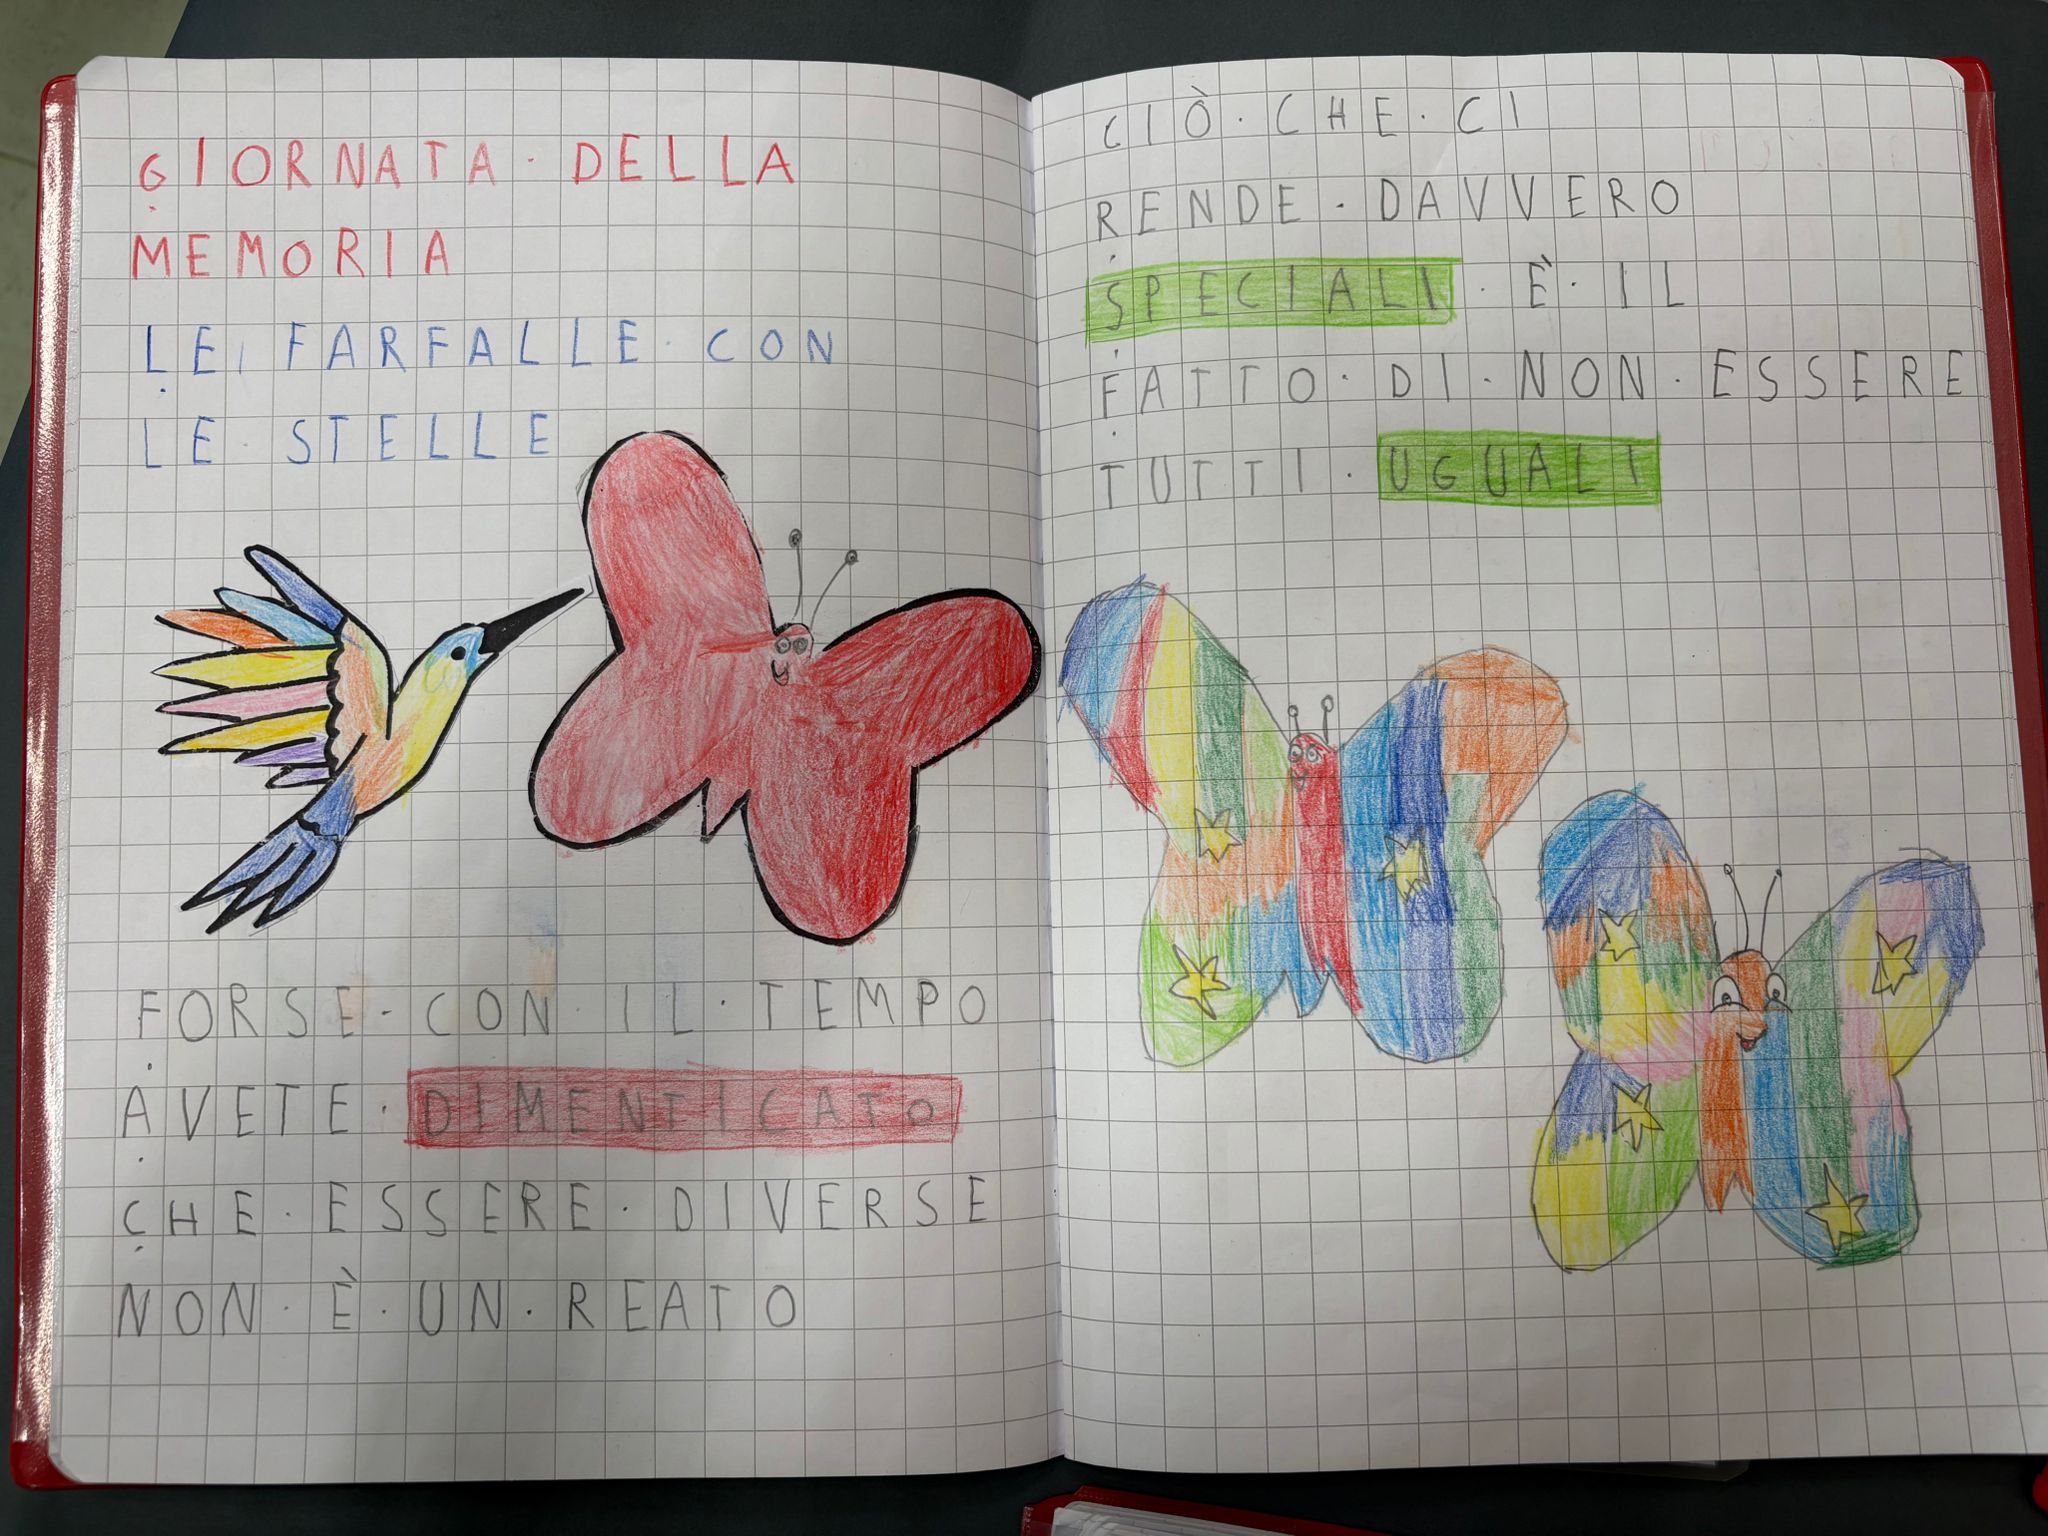 GIORNATA·DELLA
MEMORIA
LE FARFALLE·CON
LE·STELLE
FORSE·CON·IL·TEMPO
AVETE·DIMENTICATO
CHE·ESSERE·DIVERSE
NON·È·UN·REATO
CIÒ·CHE·CI
RENDE·DAVVERO
SPECIALI·È·IL
FATTO·DI·NON·ESSERE
TUTTI·UGUALI